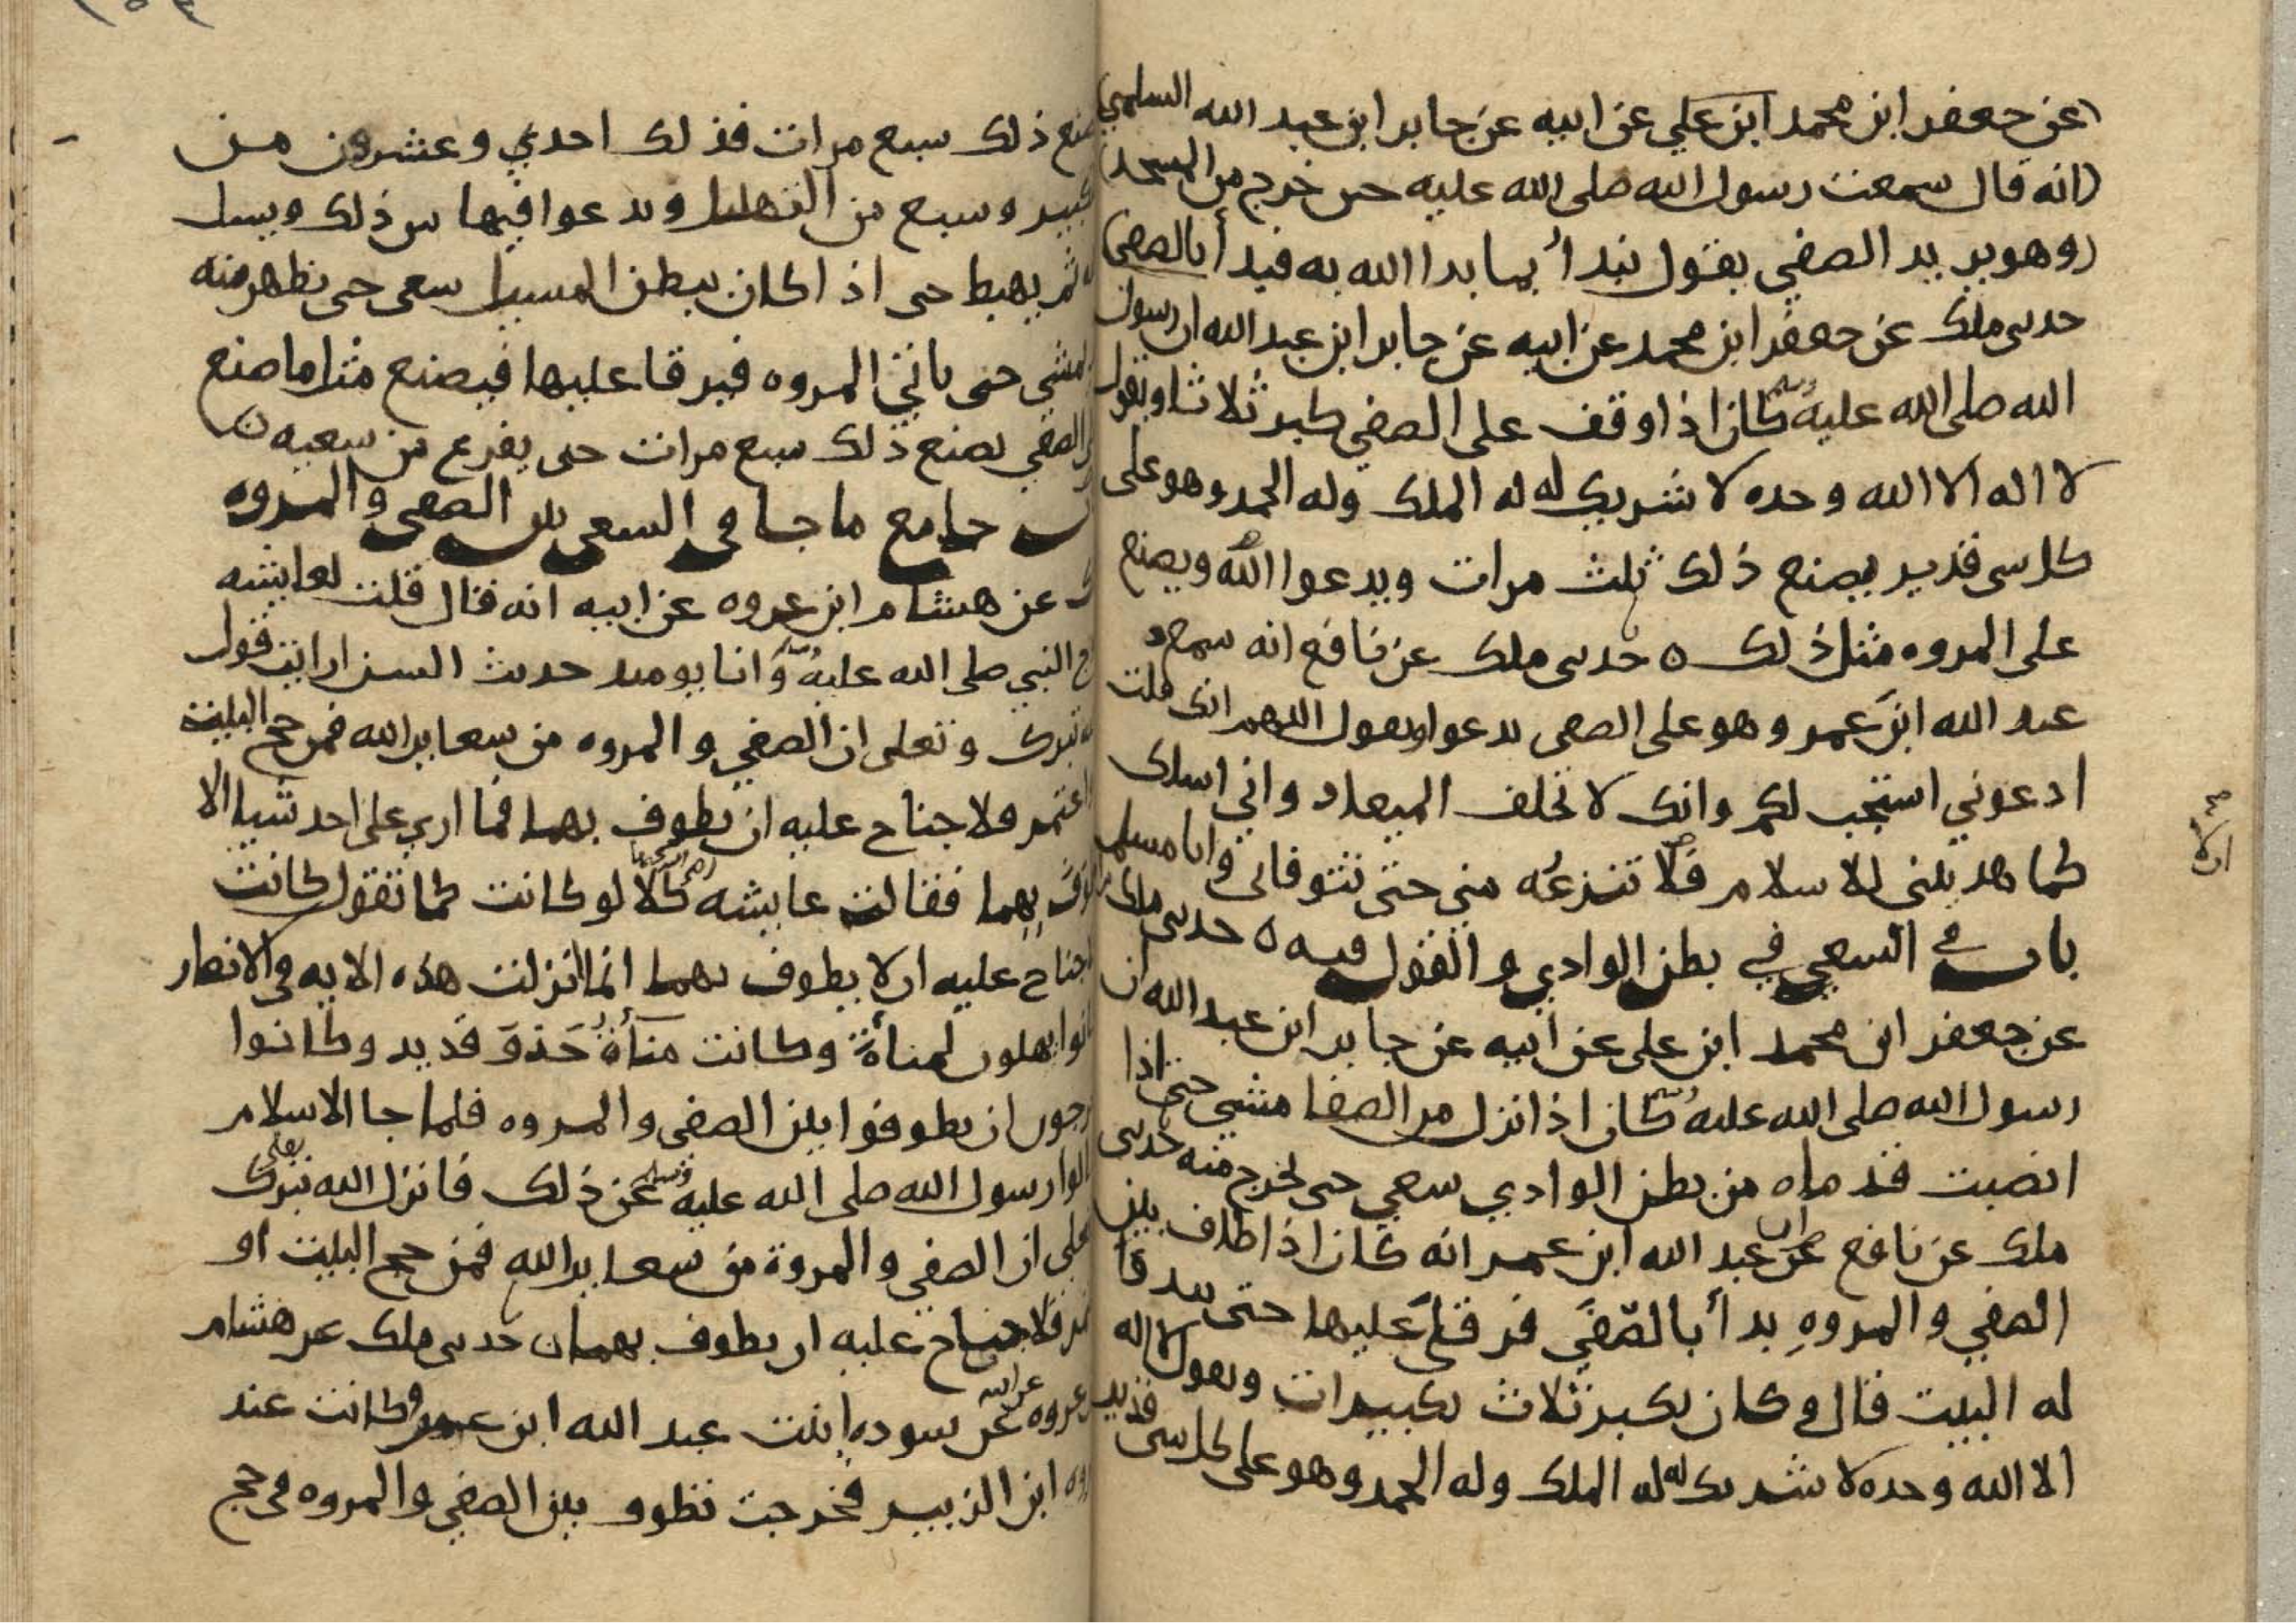 عن جعفر ابن محمد ابن علي عن ابيه عن جابر ابن عبد الله السلمي
انه قال سمعت رسول الله صلى الله عليه حين خرج من المسجد
وهو يريد الصفي يقول نبدأ بما بدا الله به فبدأ بالصفى
حدثني ملك عن جعفر ابن محمد عن ابيه عن جابر ابن عبد الله ان رسول
الله صلى الله عليه وسلم كان اذا وقف على الصفي كبر ثلاثا ويقول
لا اله الا الله وحده لا شريك له له الملك وله الحمد وهو على
كل شي قدير يصنع ذلك ثلث مرات ويدعوا الله ويصنع
على المروه مثل ذلك ه حدثني ملك عن نافع انه سمع
عبد الله ابن عمر وهو على الصفى يدعوا ويقول اللهم انك قلت
ادعوني استجب لكم وانك لا تخلف الميعاد واني اسلك
كما هديتني للاسلام فلا تنزعه مني حتى تتوفاني وانا مسلم
باب في السعي في بطن الوادي والقول فيه ه حدثني ملك
عن جعفر ابن محمد ابن علي عن ابيه عن جابر ابن عبد الله ان
رسول الله صلى الله عليه وسلم كان اذا نزل من الصفا مشي حتى اذا
انصبت قدماه من بطن الوادي سعي حتى يخرج منه حدثني
ملك عن نافع عن عبد الله ابن عمر انه كان اذا طاف بين
الصفي والمروه بدأ بالصفي فرقا عليها حتى يبدو
له البيت قال وكان يكبر ثلاث تكبيرات ويقول لا اله
الا الله وحده لا شريك له له الملك وله الحمد وهو على كل شى قدير
ان لا
يصنع ذلك سبع مرات فذلك احدي وعشرون من
تكبير وسبع من التهليل ويدعوا فيها بين ذلك ويسل
ثم يهبط حتى اذا كان ببطن المسيل سعى حتى يظهر منه
يمشي حتى ياتي المروه فيرقا عليها فيصنع مثل ما صنع
الصفي يصنع ذلك سبع مرات حتى يفرغ من سعيه
جامع ما جا في السعي بين الصفى والمروه
عن هشام ابن عروه عن ابيه انه قال قلت لعايشه
النبي صلى الله عليه وسلم وانا يوميد حديث السن ارايت قول
تبرك وتعلى ان الصفي والمروه من شعاير الله فمن حج البيت
اعتمر فلا جناح عليه ان يطوف بهما فما اري على احد شيا الا
يطوف بهما فقالت عايشه رضي الله عنها كلا لو كانت كما تقول كانت
جناح عليه ان لا يطوف بهما انما انزلت هذه الايه في الانصار
كانوا يهلون لمناة وكانت مناة حذو قديد وكانوا
يتحرجون ان يطوفوا بين الصفي والمروه فلما جا الاسلام
سالوا رسول الله صلى الله عليه وسلم عن ذلك فانزل الله تبرك وتعلى
ان الصفي والمروة من شعاير الله فمن حج البيت او
اعتمر فلا جناح عليه ان يطوف بهما ن حدثني ملك عن هشام
عروه عن ابيه عن سوده ابنت عبد الله ابن عمر وكانت عند
عروه ابن الزبير فخرجت تطوف بين الصفي والمروه في حج